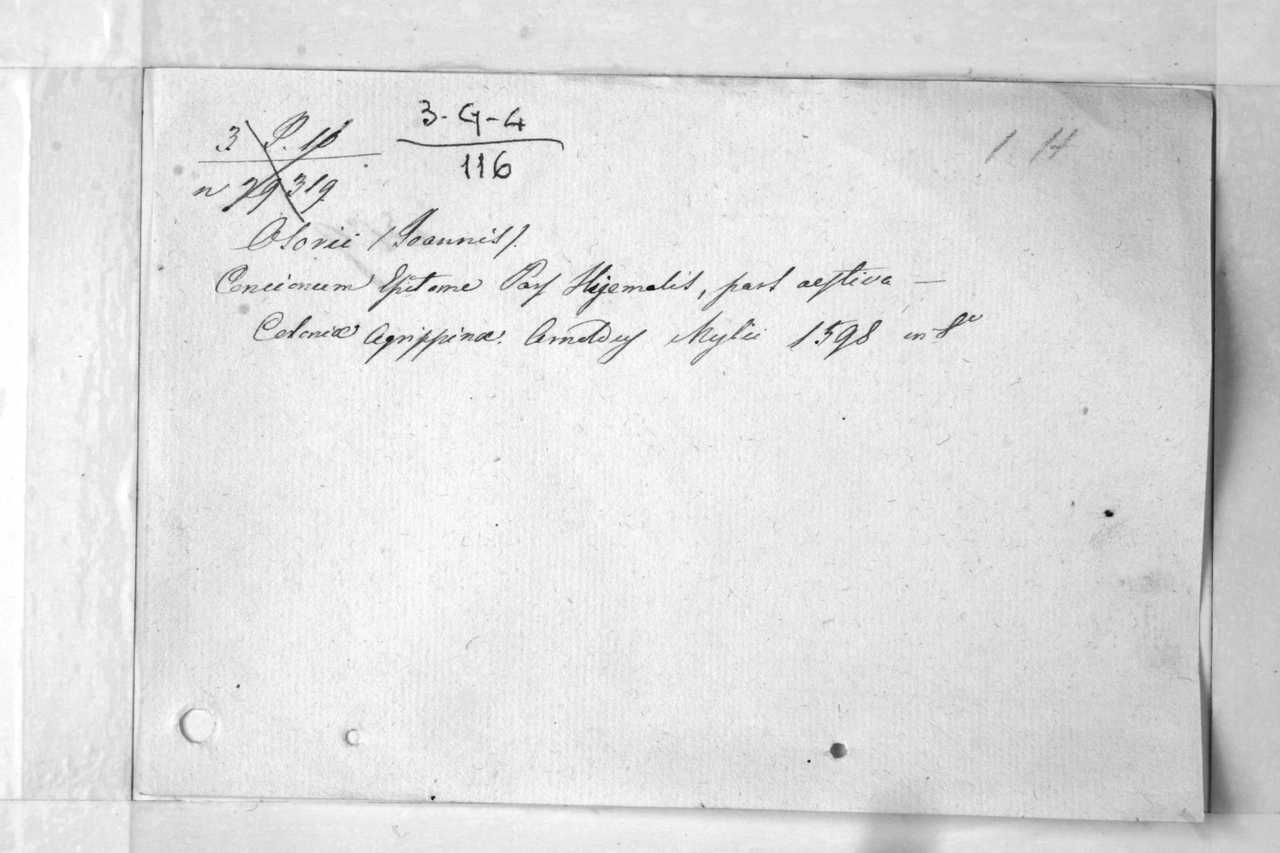 3 P. 18
n 29319
3-G-4
116
1 H
Osorii (Joannis).
Concionum Epitome Pars Hyemalis, pars aestiva —
Coloniæ Agrippinæ. Arnoldus Mylii 1598 in-8º